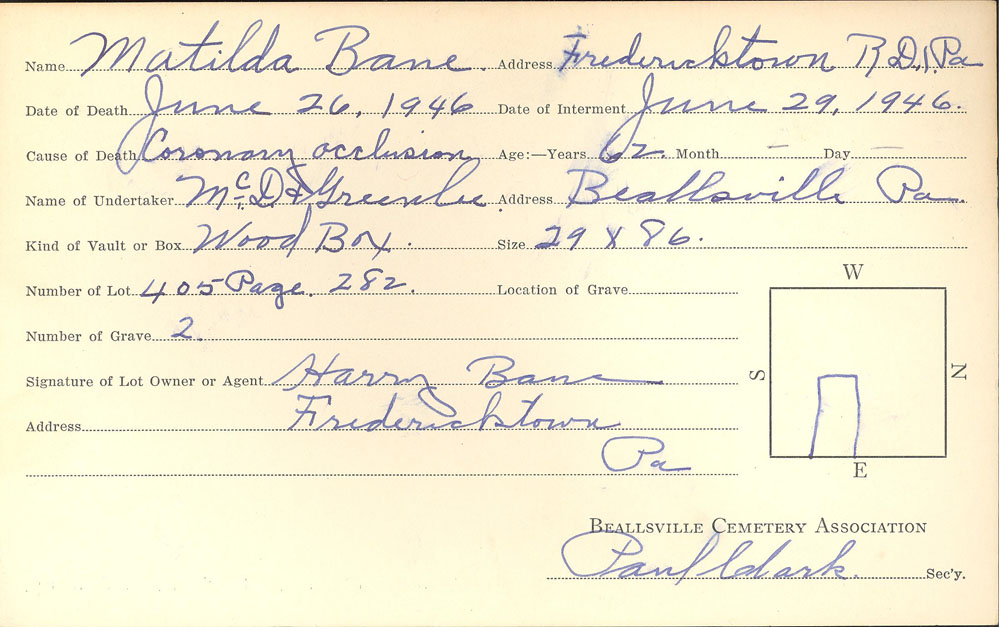 Name Matilda Bane. Address Fredericktown R.D.1. Pa
Date of Death June 26, 1946 Date of Interment June 29, 1946.
Cause of Death Coronary occlusion Age:—Years 62 Month – Day –
Name of Undertaker McD & Greenlee. Address Beallsville Pa.
Kind of Vault or Box Wood Box. Size 29 x 86.
Number of Lot 405 Page. 282. Location of Grave
Number of Grave 2.
Signature of Lot Owner or Agent Harry Bane
Address Fredericktown
Pa
W
S
N
E
Beallsville Cemetery Association
Paul Clark. Sec'y.